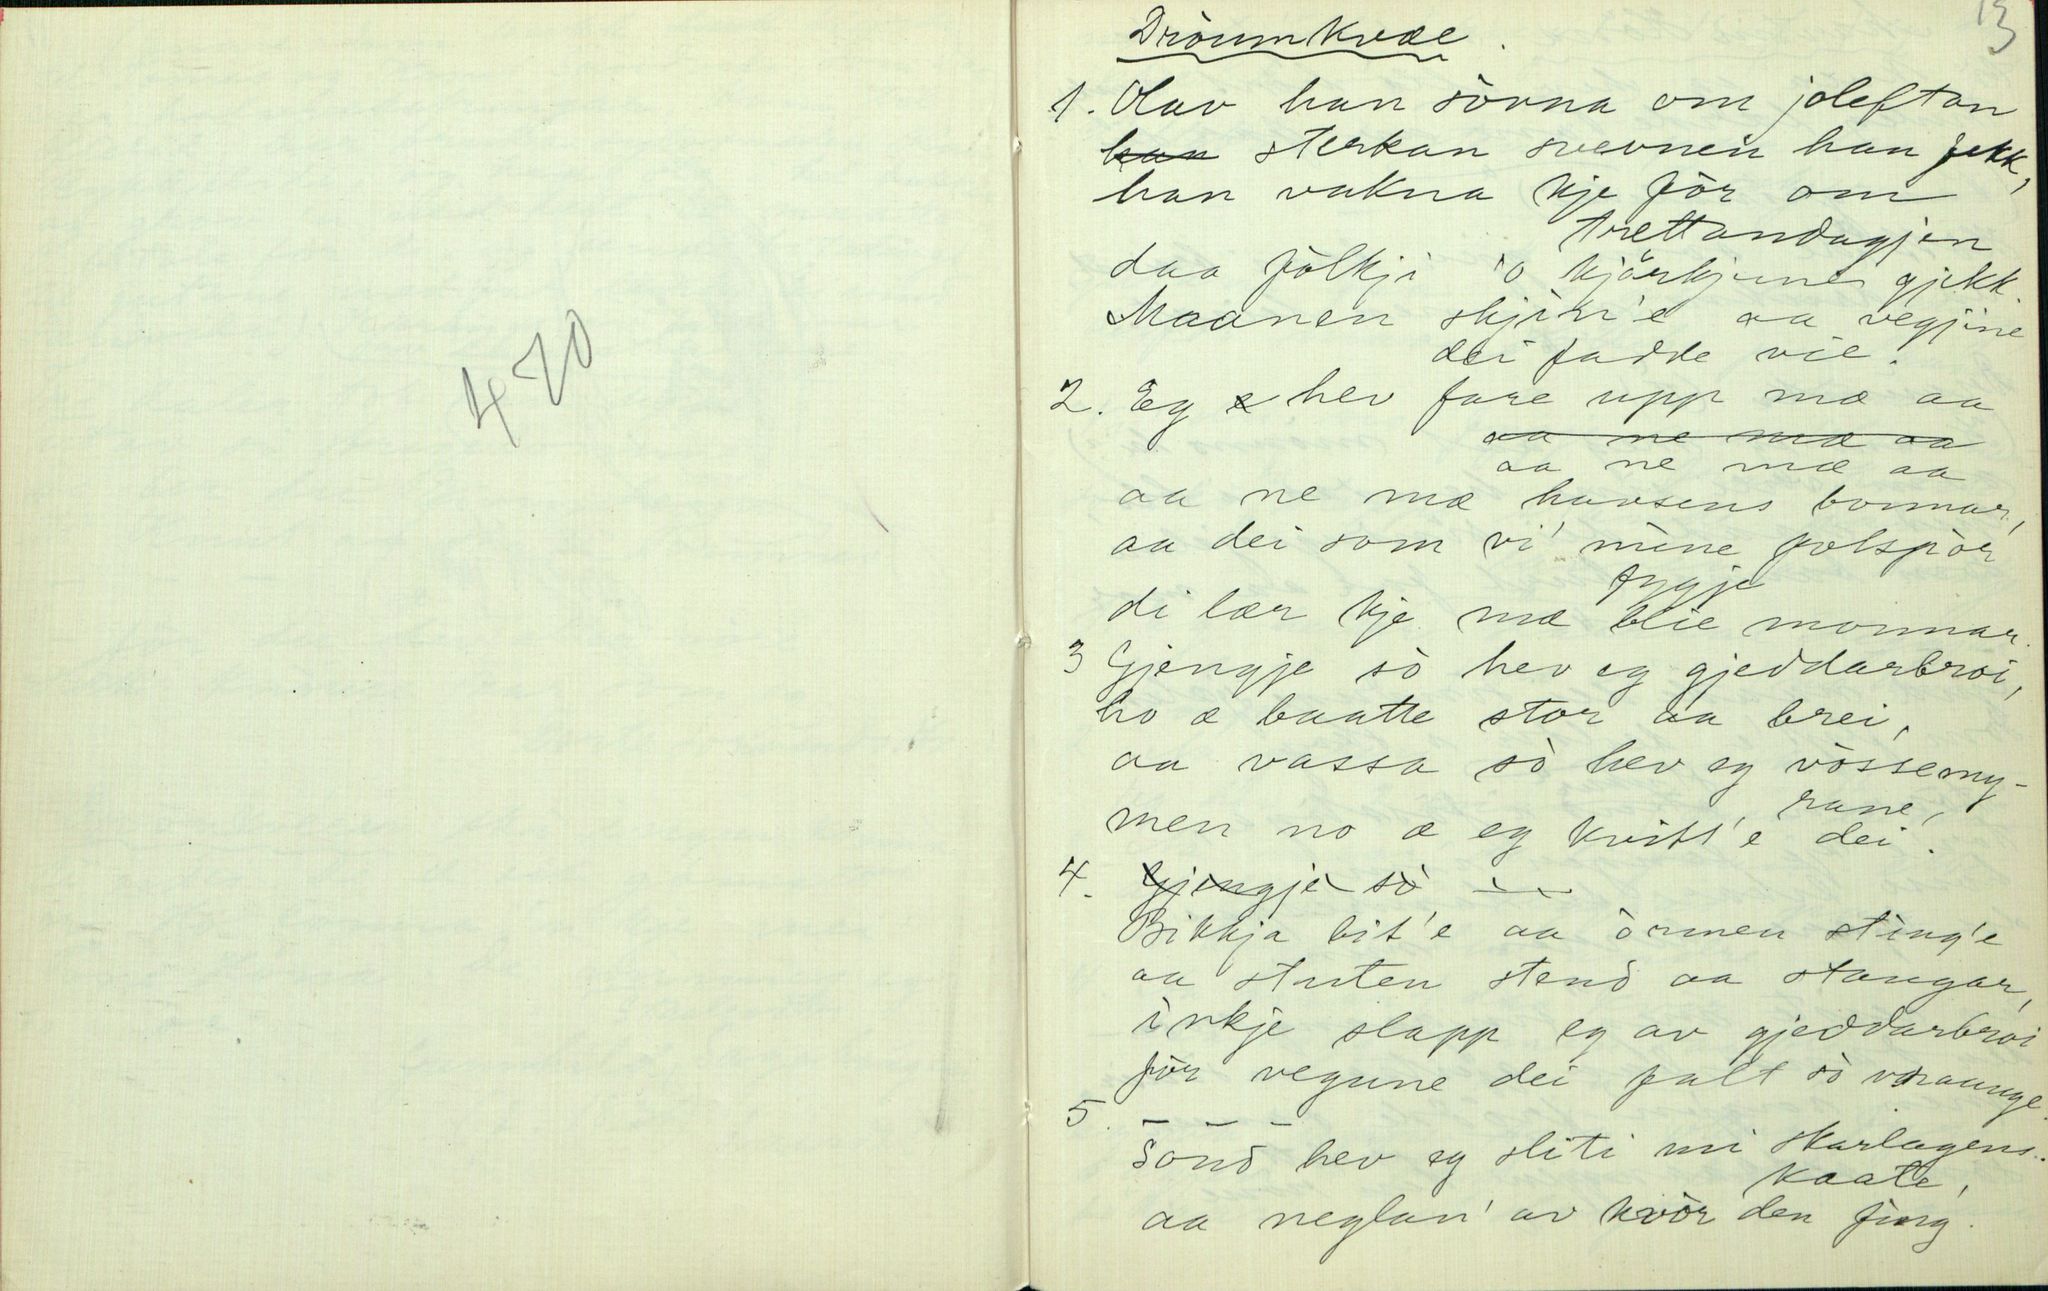 470
13
Dròumkvæe.
1. Olav han sòvna om joleftan
han sterkan svevnein han fekk,
han vakna kje fòr om
trettandagjen
daa fòlkji 'o kjørkjune gjekk.
Maanen skjin'e aa vegjine
dei fadde vie.
2. Eg e hev fare upp mæ aa
aa ne mæ aa
aa ne mæ aa
aa ne mæ havsens bonnar,
aa dei som vi' mine fotspòr
fygje
di lær kje mæ blie monnar.
3 Gjengje sò hev eg gjeddarbroi,
ho æ baatte stor aa brei,
aa vassa sò hev eg vòssemy-
rane,
men no æ eg kvitt'e dei.
4. Gjengje sò - -
Bikkja bit'e aa òrmen sting'e
aa stuten stend aa stangar,
inkje slapp eg av gjeddarbroi
fòr vegune dei falt sò vraange.
5. - - -
Sond hev eg sliti mi skarlagens-
kaate,
aa neglan' av kvòr den fing.